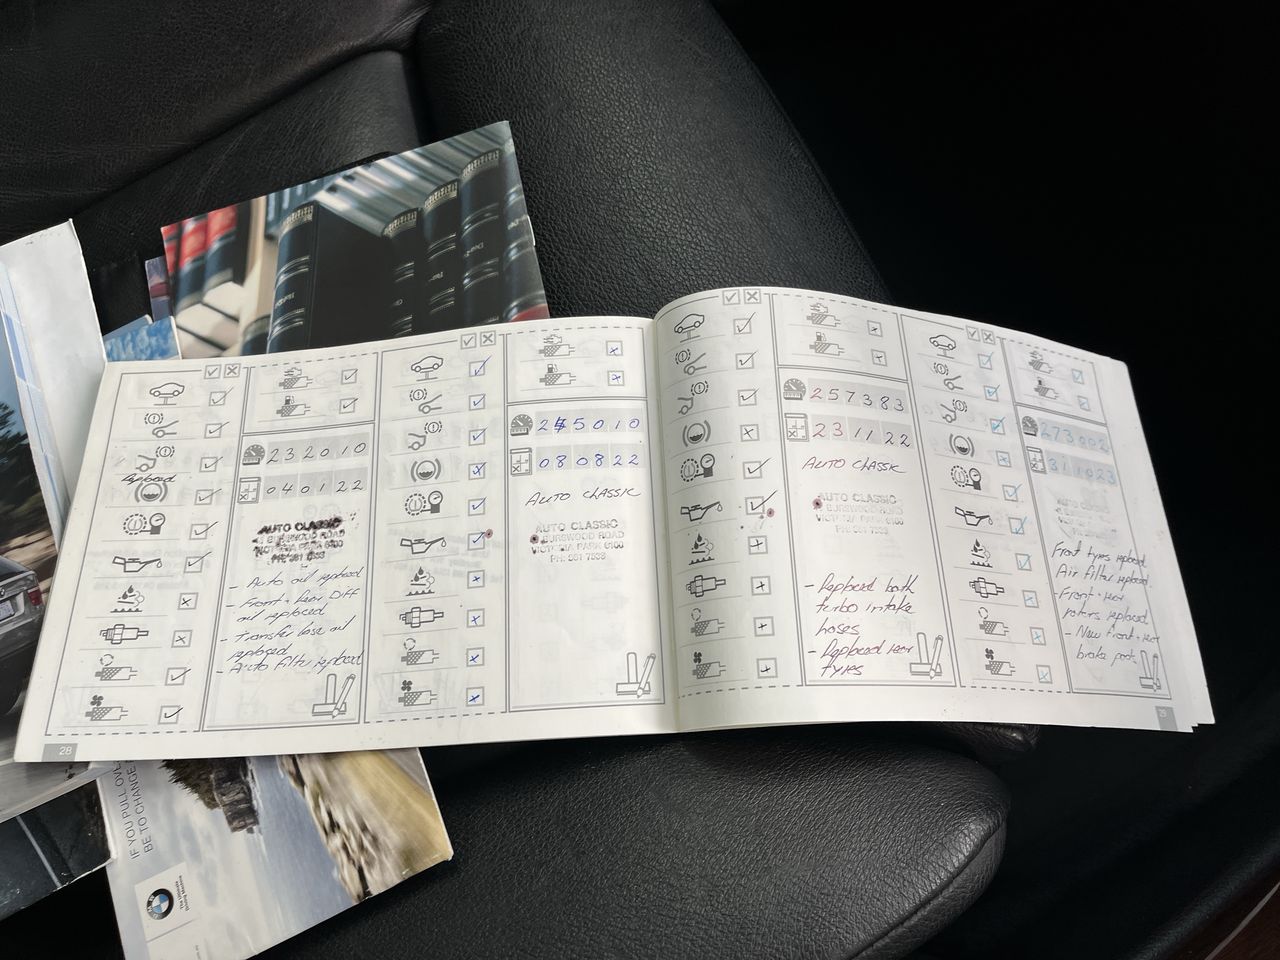 Replaced
232010
040122
AUTO CLASSIC
BURSWOOD ROAD
VICTORIA PARK 6100
- Auto oil replaced
- Front + Rear Diff
oil replaced
- Transfer case oil
replaced
- Auto Filter replaced
28
245010
080822
AUTO CLASSIC
AUTO CLASSIC
BURSWOOD ROAD
VICTORIA PARK 6100
257383
231122
AUTO CLASSIC
AUTO CLASSIC
BURSWOOD ROAD
VICTORIA PARK 6100
- Replaced both
turbo intake
hoses
- Replaced rear
tyres
273002
311023
Front tyres replaced
Air Filter replaced.
- Front + rear
rotors replaced
- New front + rear
brake pads
29
IF YOU PULL OVER
BE TO CHANGE
BMW
The Ultimate
Driving Machine